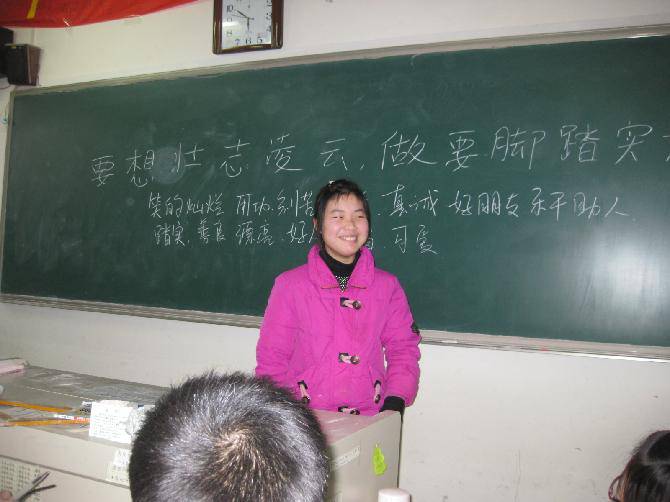 要想壮志凌云,做要脚踏实
笑的灿烂 用功,刻苦 真诚 好朋友 乐于助人
踏实,善良 漂亮,好 可爱